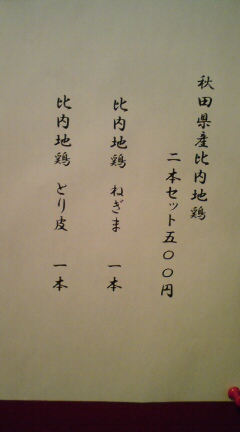 秋田県産比内地鶏
二本セット五〇〇円
比内地鶏 ねぎま 一本
比内地鶏 とり皮 一本